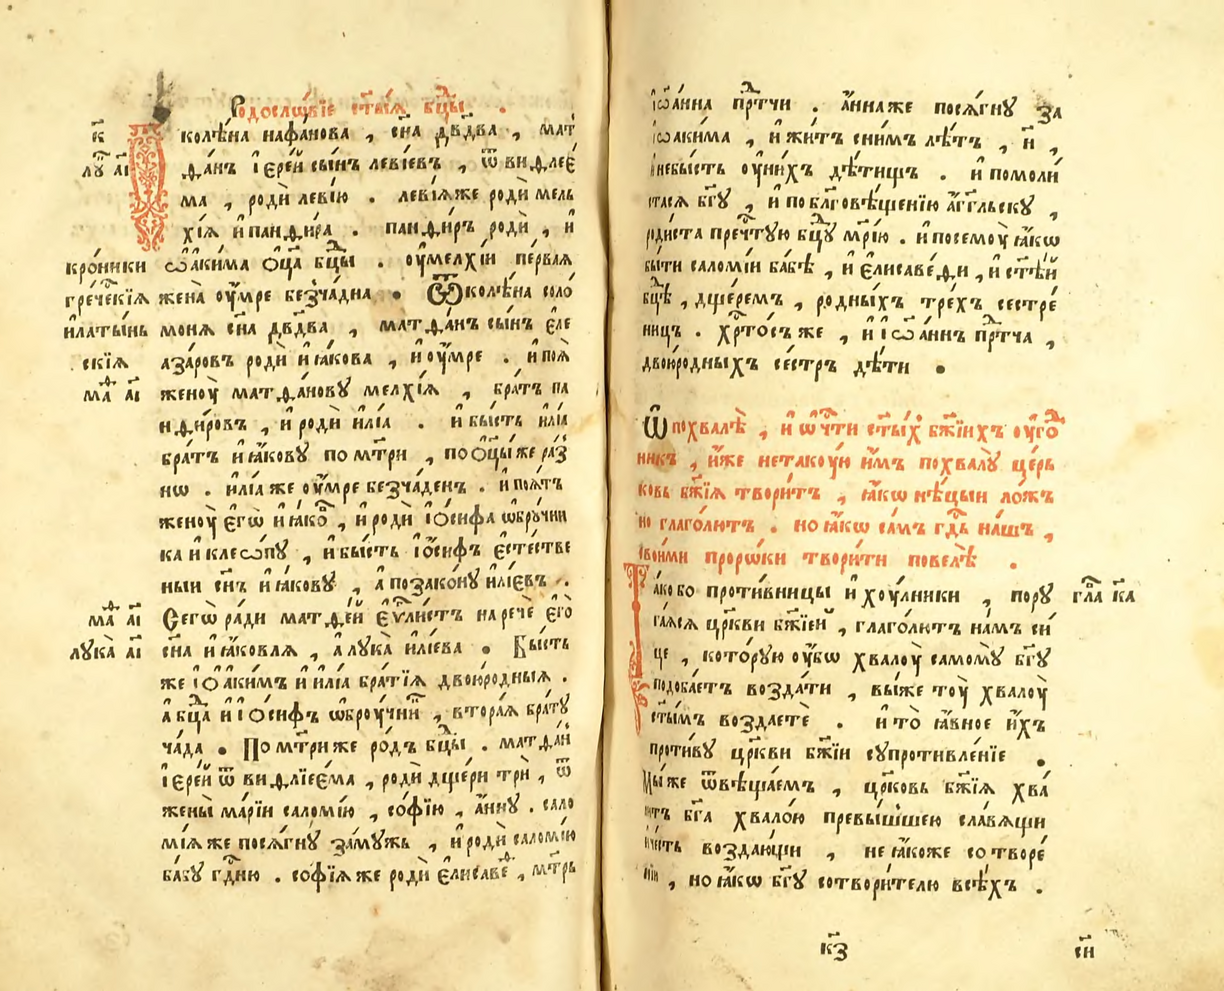 Родослѡвїе ст҃ыѧ бц҃ы .
к҃
И колѣна нафанова , сн҃а дв҃два , мат
лꙋ҃ г҃і
ѳанъ їерей сынъ левїевъ , ѿ виѳлее
ма , роди левїю . левїѧже роди мель
хїѧ и панѳира . панѳиръ роди , и
кроники
ѡакима ѻц҃а бц҃ы . оумелхїи первая
греческїѧ
жена оумре безчадна . Ѿ колѣна соло
илатынь
монѧ сн҃а дв҃два , матѳанъ сынъ еле
скїѧ
азаровъ роди иꙗкова , и оумре . и поѧ
мⷴа а҃і
женоу матѳановꙋ мелхїѧ , братъ па
нѳировъ , и роди илїа . и бысть илїа
братъ иꙗковꙋ по мт҃ри , поѻц҃ыже раз
нѡ . илїаже оумре безчаденъ . и поѧтъ
женоу егѡ иꙗкоⷡ , и роди їѻсифа ѡбрꙋчни
ка и клеѡпꙋ , и бысть їѻсифъ естестве
ныи сн҃ъ иꙗковꙋ , а позаконꙋ илїевъ .
мⷴа а҃і
Сегѡ ради матѳей еѵⷢлистъ нарече его
лꙋка г҃і
сн҃а иꙗковля , а лꙋка илїева . Бысть
же їѻакимъ и илїа братїѧ двоюродныѧ .
а бц҃а и їѻсифъ ѡброучниⷦ , вторая братꙋ
чада . По мт҃риже родъ бц҃ы . матѳан
їерей ѿ виѳлїеема , роди дщери три , ѿ
жены марїи саломїю , софїю , аннꙋ . сало
мїѧже посѧгнꙋ замꙋжь , и роди саломїю
бабꙋ гд҃ню . софїѧже роди елисавеⷴ , мт҃рь
їѡанна прⷣтчи . аннаже посѧгнꙋ за
їѡакима , и житъ снимъ лѣтъ , н҃ ,
и небысть оунихъ дѣтищъ . и помоли
стасѧ бг҃ꙋ , и поблг҃овѣщенїю агг҃льскꙋ ,
родиста преч҃тꙋю бцⷣꙋ мр҃їю . и посемоу ꙗкѡ
быти саломїи бабѣ , и елисавеѳи , и ст҃ѣй
бц҃ѣ , дщеремъ , родныхъ трехъ сестре
ницъ . хрⷭтосъ же , и їѡаннъ прⷣтча ,
двоюродныхъ сестръ дѣти .
Ѿ похвалѣ , и ѡ чⷭти ст҃ыⷯ бж҃їихъ оугоⷣ
никъ , иже нетакоую имъ похвалꙋ церь
ковь бж҃їѧ творитъ , ꙗкѡ нѣцыи ложъ
но глаголютъ . но ꙗкѡ самъ гдⷭь нашъ ,
своими пророки творити повелѣ .
Такобо противницы и хоулники , порꙋ
глⷡа к҃а
гаѧсѧ цр҃кви бж҃їей , глаголитъ намъ си
це , которꙋю оубѡ хвалоу самомꙋ бг҃ꙋ
подобаетъ воздати , выже тоу хвалоу
ст҃ымъ воздаете . и то ꙗвное ихъ
противꙋ цр҃кви бж҃їи сꙋпротивленїе .
Мы же ѿвѣщаемъ , цр҃ковь бж҃їѧ хва
литъ бг҃а хвалою превышшею славѧщи
и честь воздающи , не ꙗкоже со творе
нїи , но ꙗкѡ бг҃ꙋ сотворителю всѣхъ .
кз҃
сн